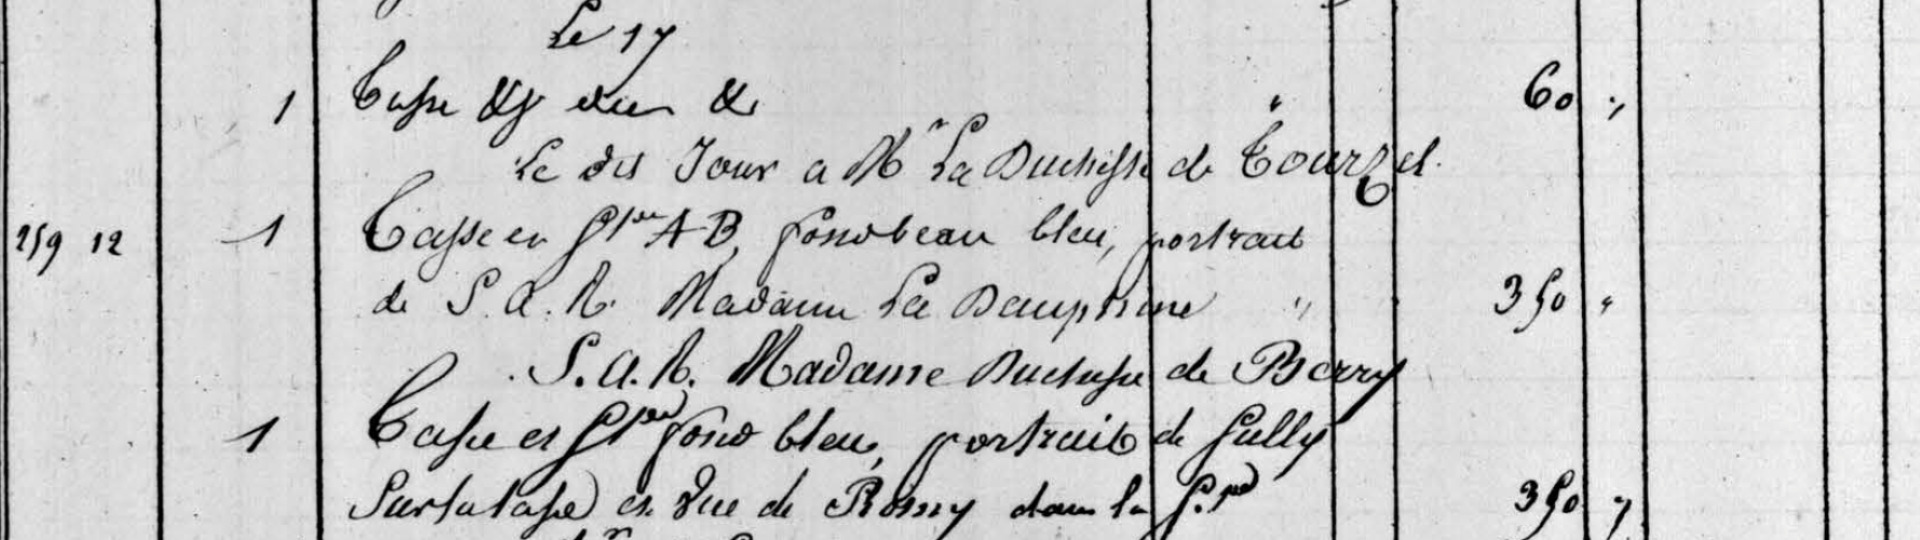 Le 17
1 Tasse &a vue & " 60 "
Le dit Jour a Me La Duchesse de Tourzel.
259 12 1 Tasse et Stre A B, fond beau bleu, portrait
de S. A. R. Madame La Dauphine " " 350 "
S. A. R. Madame Duchesse de Berry
1 Tasse et Spe fond bleu, portrait de Sully
Sur la tasse et vue de Rosny dans la S.pe 350 "